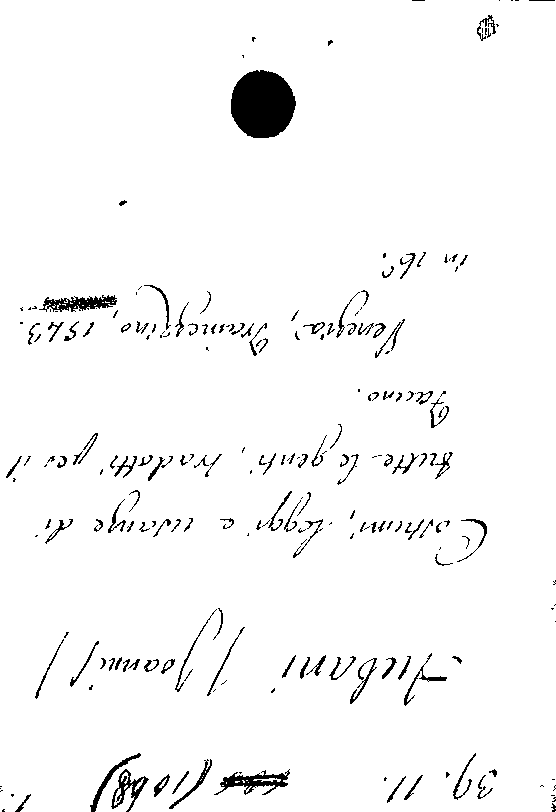 39. 11. (1068)
Aubani (Joanni)
Costumi, leggi e usanze di
tutte le genti, tradotti per il
Fauno.
Venezia, Tramezzino, 1543.
in 16°.